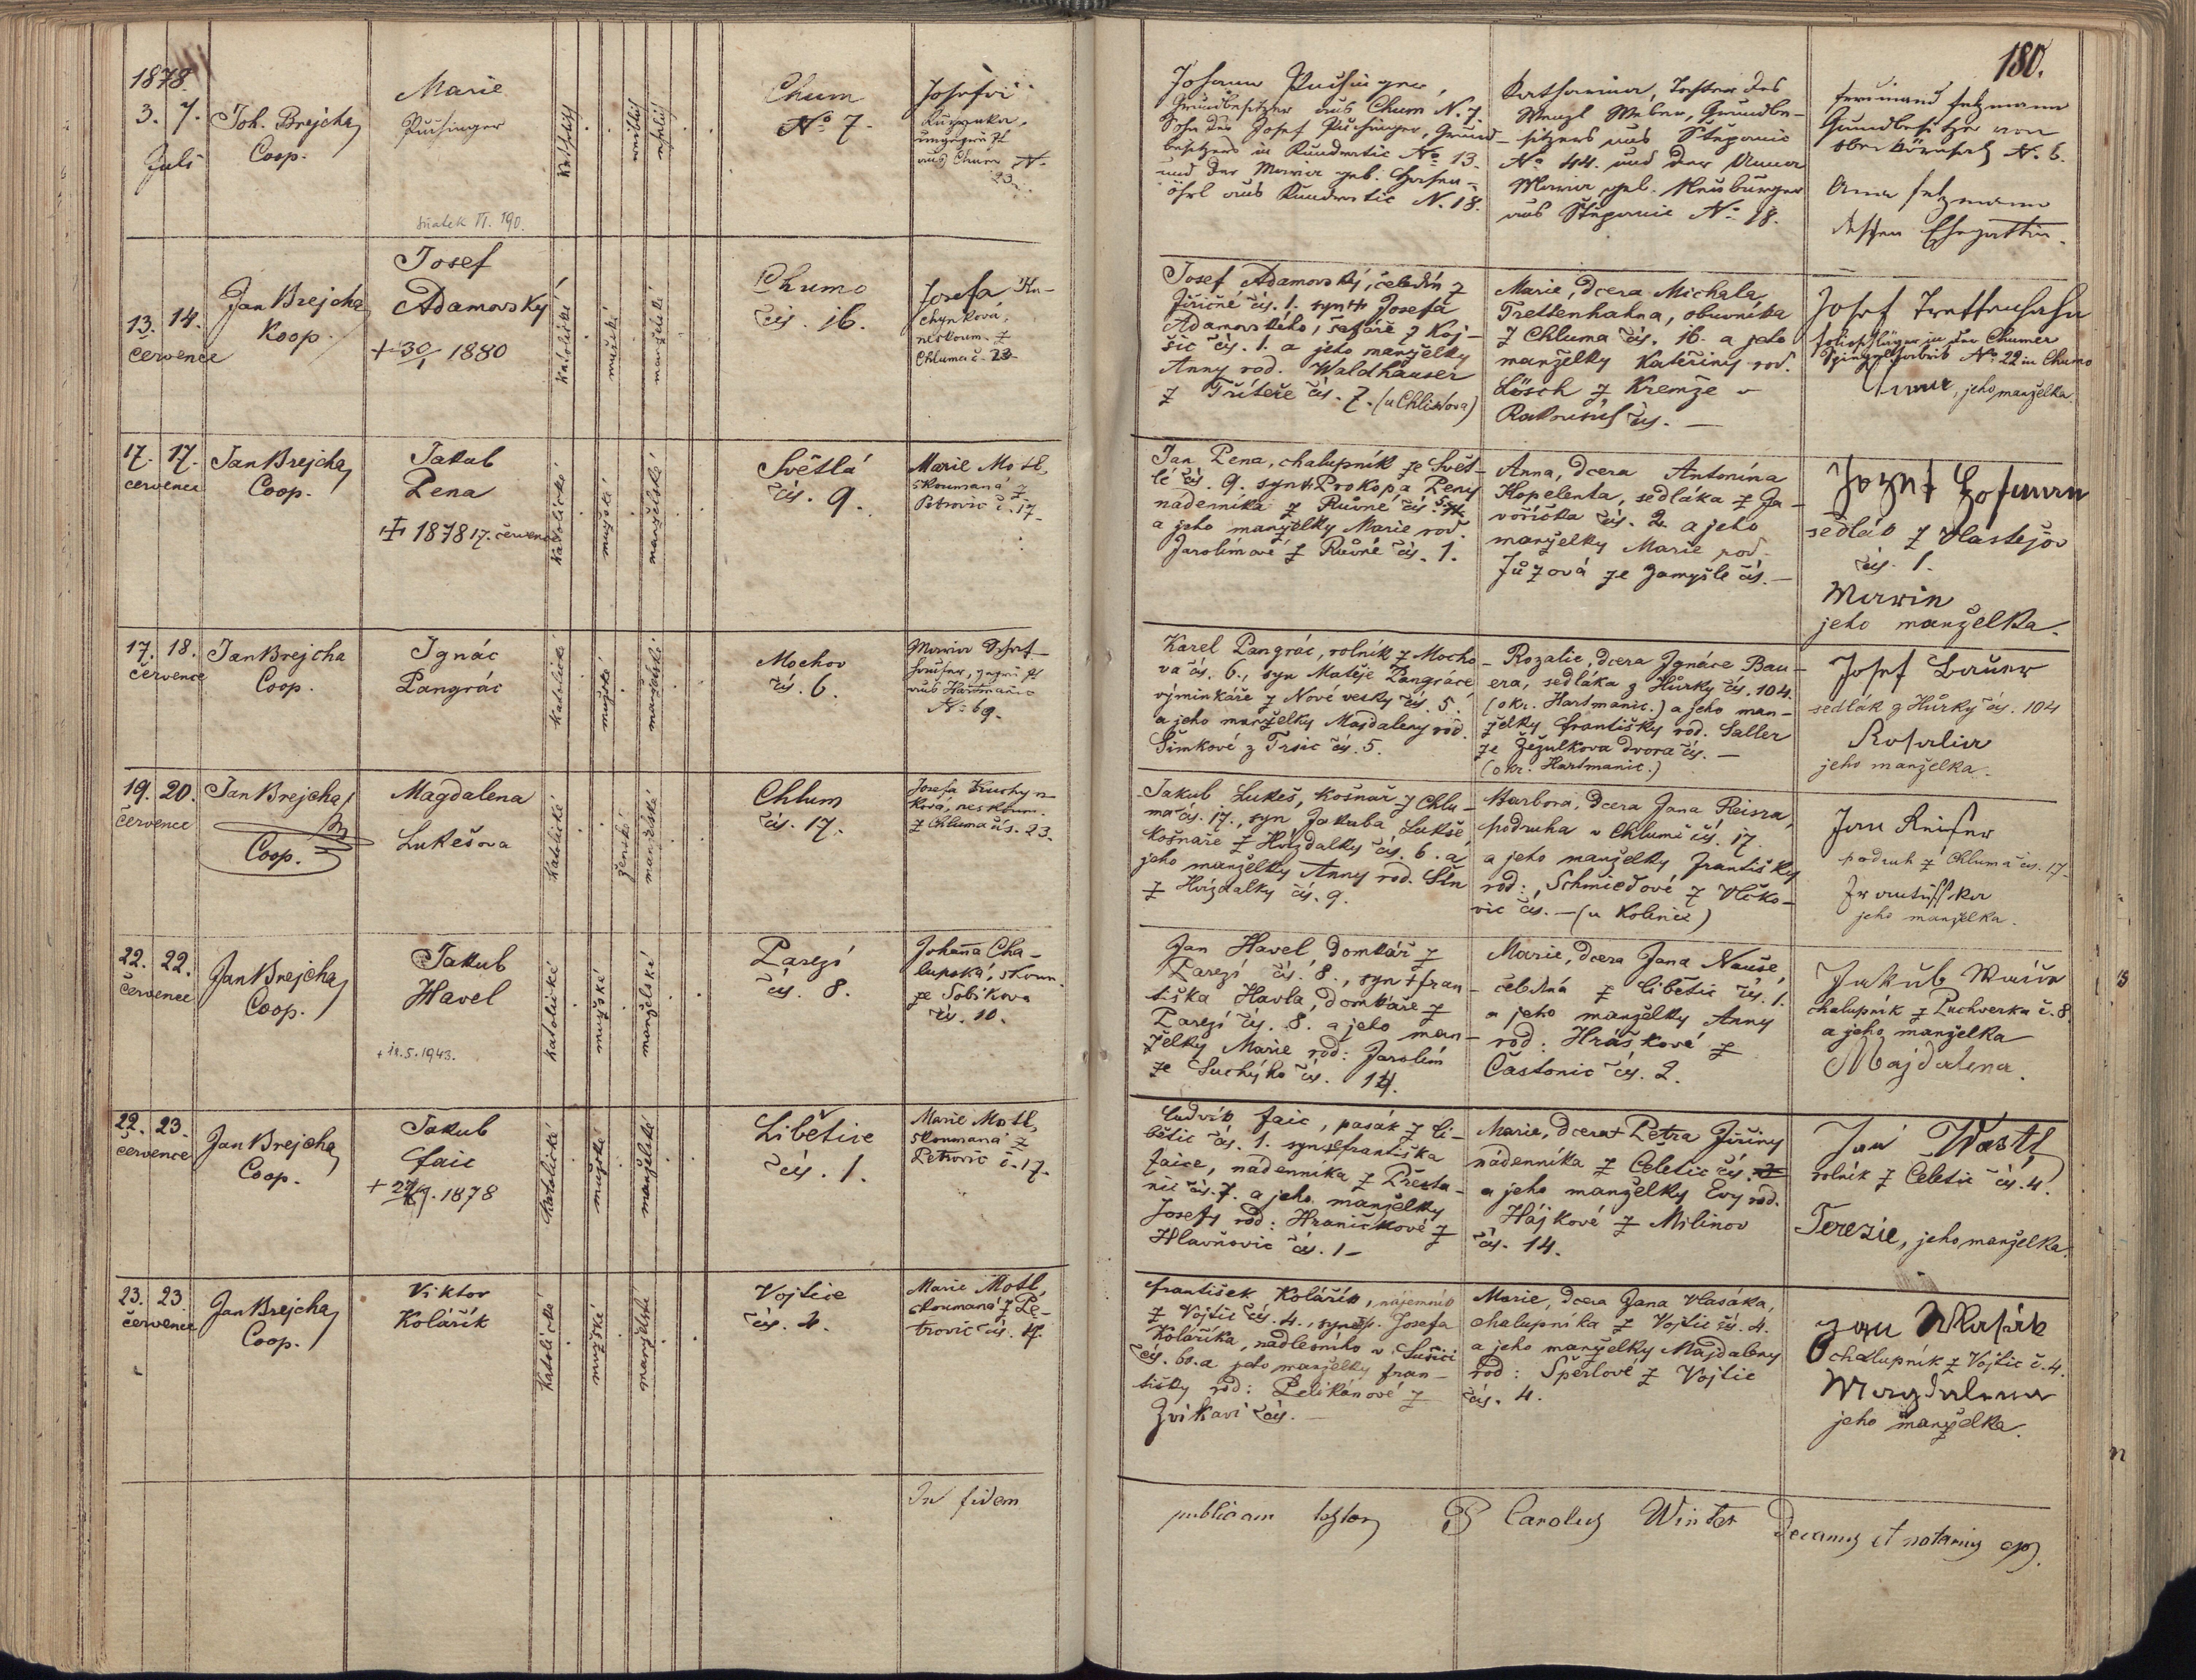 180.
1878.
3. 7.
Juli
Joh. Brejcha
Coop.
Marie
Puchinger
sňatek VI. 190.
katholisch
weiblich
ehelich
Chum
No 7.
Josefa
ungeprüft
aus Chum N.
23.
Johann Puchinger,
Grundbesitzer aus Chum N. 7.
Sohn des Josef Puchinger, Grund-
besitzers in Kundratic No 13.
und der Maria geb.
aus Kundratic N. 18.
Katharina, Tochter des
Wenzl Weber, Grundbe-
sitzers aus Štěpanic
No 44. und der Anna
Maria geb. Neuburger
aus Štěpanic No 18.
Ferdinand
Grundbesitzer von
N. 6.
Anna
dessen Ehegattin.
13. 14.
července
Jan Brejcha
Koop.
Josef
Adamovský
+ 30/1 1880
katolické
mužské
manželské
Chumo
čís. 16.
Josefa Ku-
chynková,
neskoum. z
Chluma č. 23
Josef Adamovský, čeledín z
Jiřičné čís. 1. syn + Josefa
Adamovského, šafáře z Koj-
šic čís. 1. a jeho manželky
Anny rod. Waldhauser
z Třiteře čís. 7. (u Chlistova)
Marie, dcera Michala
Trettenhahna, obuvníka
z Chluma čís. 16. a jeho
manželky Kateřiny rod.
Lösch z Kremže v
Rakousích čís. —
Josef Trettenhahn
Folioschläger in der Chumer
Spiegelfabrik No 22 in Chumo
Anna, jeho manželka.
17. 17.
července
Jan Brejcha
Coop.
Jakub
Pena
+ 1878 17. července
katolické
mužské
manželské
Světlá
čís. 9.
Marie Motl,
skoumaná z
Petrovic č. 17
Jan Pena, chalupník ze Svět-
lé čís. 9. syn + Prokopa Peny
nádenníka z Růvné čís.
a jeho manželky Marie rod.
Jarolímové z Růvné čís. 1.
Anna, dcera Antonína
Kopelenta, sedláka z Ja-
voříčka čís. 2. a jeho
manželky Marie rod.
Jůzová ze Zamyšle čís. —
Jozef Hofman
sedlák z Vlastějov
čís. 1.
Marie
jeho manželka.
17. 18.
července
Jan Brejcha
Coop.
Ignác
Pangrác
katolické
mužské
manželské
Mochov
čís. 6.
Maria
geprüft
aus Hartmanic
No 69.
Karel Pangrác, rolník z Mocho-
va čís. 6., syn Matěje Pangráce
výminkáře z Nové vesky čís. 5.
a jeho manželky Majdaleny rod.
Šimkové z Trsic čís. 5.
Rozalie, dcera Ignáce Bau-
era, sedláka z Hůrky čís. 104.
(okr. Hartmanic.) a jeho man-
želky Františky rod. Saller
ze Žežulkova dvora čís. —
(okr. Hartmanic.)
Josef Bauer
sedlák z Hůrky čís. 104
Rosalia
jeho manželka.
19. 20.
července
Jan Brejcha
Coop.
Magdalena
Lukešova
katolické
ženské
manželské
Chlum
čís. 17.
Josefa Kuchyn-
ková, neskoum.
z Chluma čís. 23.
Jakub Lukeš, košnař z Chlu-
ma čís. 17., syn Jakuba Lukše
košnaře z Hvízdalky čís. 6. a
jeho manželky Anny rod. Šln
z Hvízdalky čís. 9.
Barbora, dcera Jana Reisra,
podruha v Chlumě čís. 17.
a jeho manželky Františky
rod: Schmiedové z Vlčko-
vic čís. — (u Kolince)
Jan Reiser
podruh z Chluma čís. 17.
Frantisska
jeho manželka.
22. 22.
července
Jan Brejcha
Coop.
Jakub
Havel
+ 12.5.1943.
katolické
mužské
manželské
Parezí
čís. 8.
Johanna Cha-
lupská, skoum.
ze Sobikova
čís. 10.
Jan Havel, domkář z
Parezí čís. 8., syn + Fran-
tiška Havla, domkáře z
Parezí čís. 8. a jeho man-
želky Marie rod: Jarolím
ze Suchýho čís. 14.
Marie, dcera Jana Nauše,
čeledína z Libětic čís. 1.
a jeho manželky Anny
rod: Hráškové z
Častonic čís. 2.
Jakub
chalupník z Puchverka č. 8.
a jeho manželka
Majdalena.
22. 23.
července
Jan Brejcha
Coop.
Jakub
Faic
katolické
mužské
manželské
Libětice
čís. 1.
Marie Motl,
skoumaná z
Petrovic č. 17.
Ludvík Faic, pasák z Li-
bětic čís. 1. syn + Františka
Faice, nádenníka z Přesta-
nic čís. 7. a jeho manželky
Josefy rod: Hraničkové z
Hlavňovic čís. 1
Marie, dcera + Petra Jiřiny
nádenníka z Čeletic čís.
a jeho manželky Evy rod.
Hájkové z Milinov
čís. 14.
Jan Wastl
rolník z Čeletic čís. 4.
Terezie, jeho manželka.
23. 23.
července
Jan Brejcha
Coop.
Viktor
Kolářík
katolické
mužské
manželské
Vojtice
čís. 4.
Marie Motl,
skoumaná z Pe-
trovic čís. 17.
František Kolářík, nájemník
z Vojtic čís. 4., syn Josefa
Kolaříka, nadlesního v Sušici
čís. 60. a jeho manželky Fran-
tišky rod: Pelikánové z
Zvíkaví čís. —
Marie, dcera Jana Vlasáka,
chalupníka z Vojtic čís. 4.
a jeho manželky Majdaleny
rod: Šperlové z Vojtic
čís. 4.
Jan Wlasák
chalupník z Vojtic č. 4.
Magdalena
jeho manželka.
In fidem
publicam testor P Carolus Winter Decanus et notarius epp.